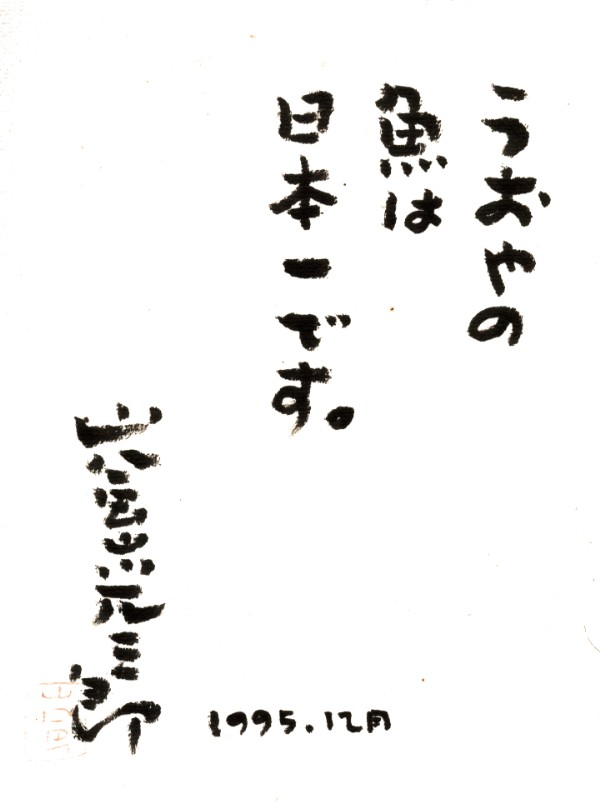 うおやの
魚は
日本一です。
道場六三郎
1995.12月